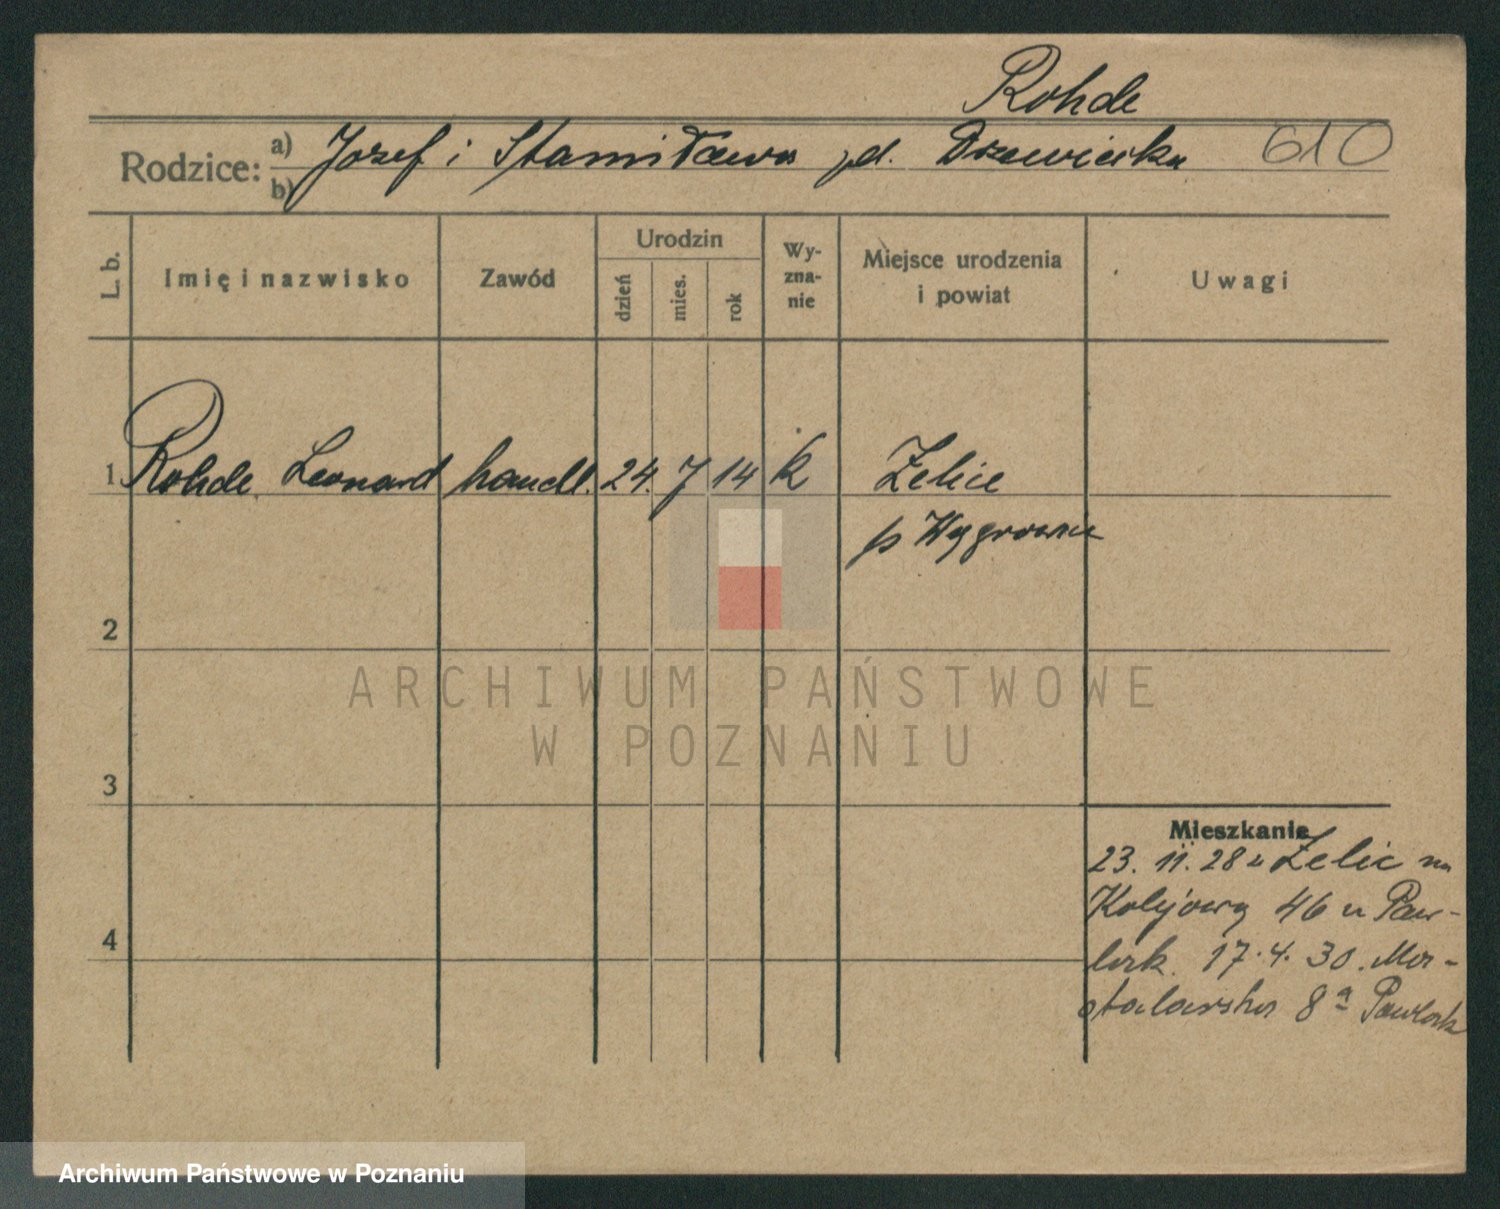 Rohde
Rodzice: a) Józef i Stanisława zd. Drzewiecka 610
b)
L. b. Imię i nazwisko Zawód Urodzin dzień mies. rok Wy-zna-nie Miejsce urodzenia i powiat Uwagi
1 Rohde Leonard handl. 24. 7 14 k Zelice
p Wągrowiec
2
ARCHIWUM PAŃSTWOWE
W POZNANIU
3
Mieszkanie
23. 11. 28 z Zelic na
Kolejową 46 u Paw-
lak. 17.4.30. Mo-
stalarska 8a Pawlak
4
Archiwum Państwowe w Poznaniu